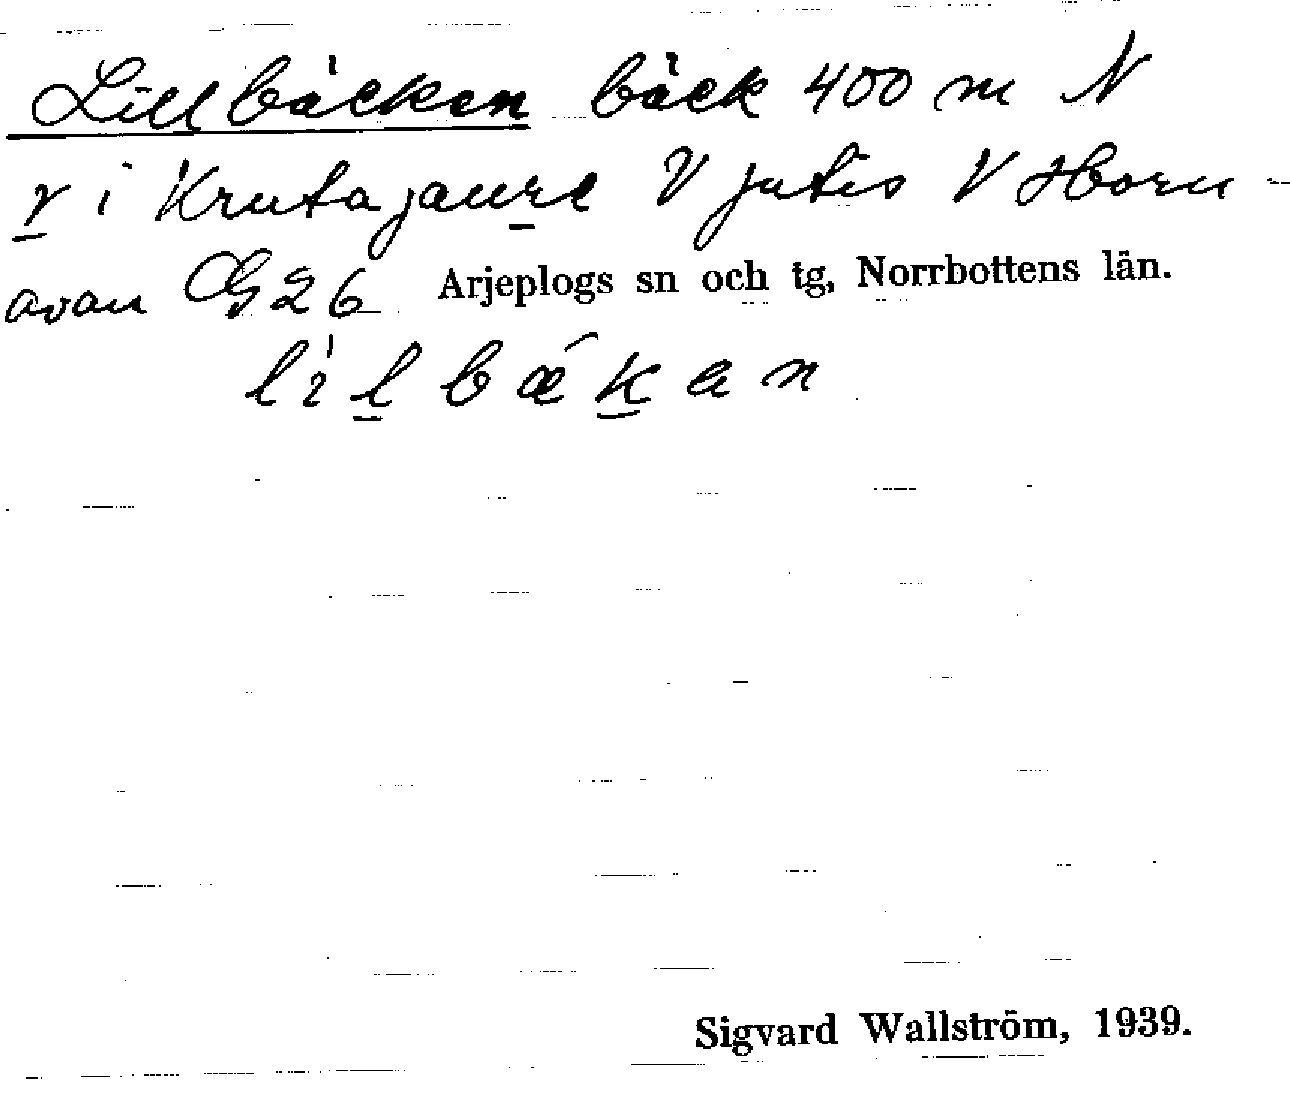 Lillbäcken bäck 400 m N
r i Krutajaure V Jutis V Horn-
avan G26 Arjeplogs sn och tg, Norrbottens län.
lilbækan
Sigvard Wallström, 1939.